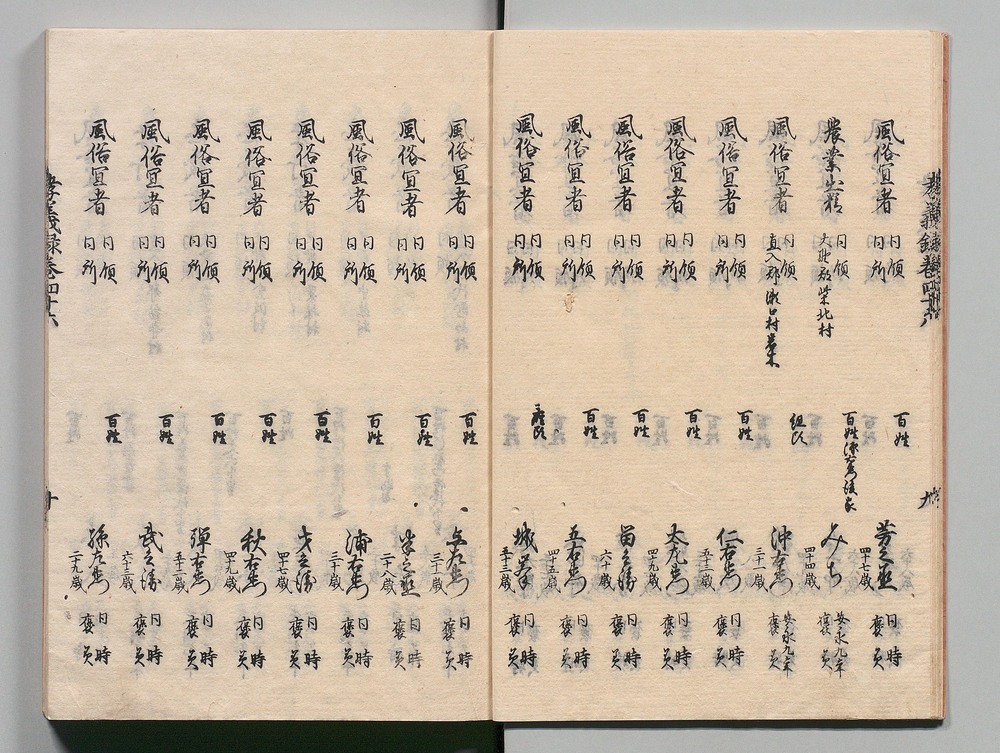 孝義録巻四十六
風俗宜者 同領 同所 百姓 芳之丞 四十七歳 同時 褒美
農業出精 同領 大野郡柴北村 百姓 後家 みち 四十四歳 安永九年 褒美
風俗宜者 同領 直入郡 口村 組頭 沖右衛門 三十一歳 安永九年 褒美
風俗宜者 同領 同所 百姓 仁右衛門 五十三歳 同時 褒美
風俗宜者 同領 同所 百姓 太左衛門 四十九歳 同時 褒美
風俗宜者 同領 同所 百姓 六十歳 同時 褒美
風俗宜者 同領 同所 百姓 五右衛門 四十五歳 同時 褒美
風俗宜者 同領 同所 五十三歳 同時 褒美
風俗宜者 同領 同所 百姓 与左衛門 三十一歳 同時 褒美
風俗宜者 同領 同所 百姓 二十八歳 同時 褒美
風俗宜者 同領 同所 百姓 浦右衛門 三十歳 同時 褒美
風俗宜者 同領 同所 百姓 四十七歳 同時 褒美
風俗宜者 同領 同所 百姓 秋右衛門 四十九歳 同時 褒美
風俗宜者 同領 同所 百姓 弾右衛門 五十二歳 同時 褒美
風俗宜者 同領 同所 百姓 武 六十三歳 同時 褒美
風俗宜者 同領 同所 百姓 孫左衛門 二十九歳 同時 褒美
孝義録巻四十六 十